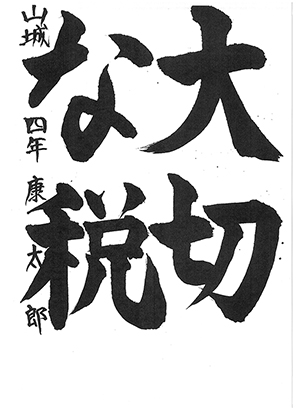 大切
な税
山城 四年 康太郎